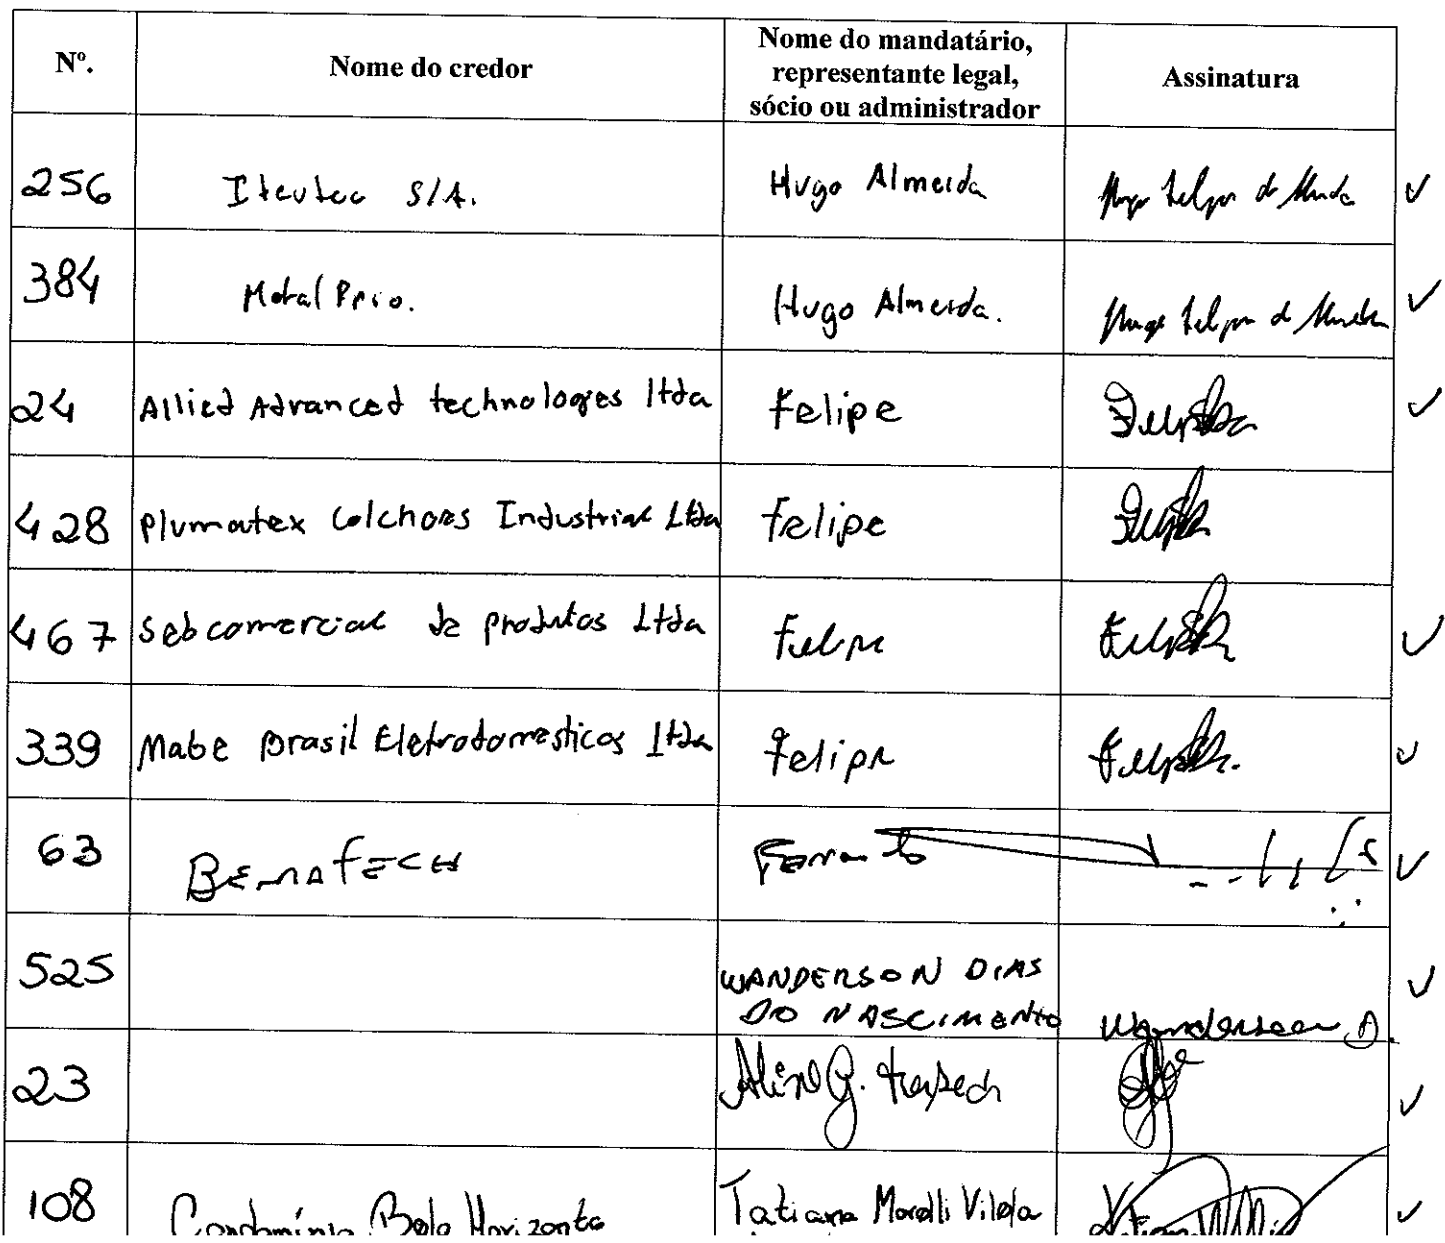 Nº.
Nome do credor
Nome do mandatário,
representante legal,
sócio ou administrador
Assinatura
256 S/A. Hugo Almeida
384 Hugo Almeida.
24 Allied Advanced technologies ltda Felipe
428 Plumatex Colchoes Industrial Ltda Felipe
467 Seb comercial de produtos Ltda Felipe
339 Mabe Brasil Eletrodomesticos ltda Felipe
63 BEMATECH
525 WANDERSON DIAS
DO NASCIMENTO Wanderson D.
23 Aline G.
108 Condomínio Belo Horizonte Tatiana Morelli Vilela